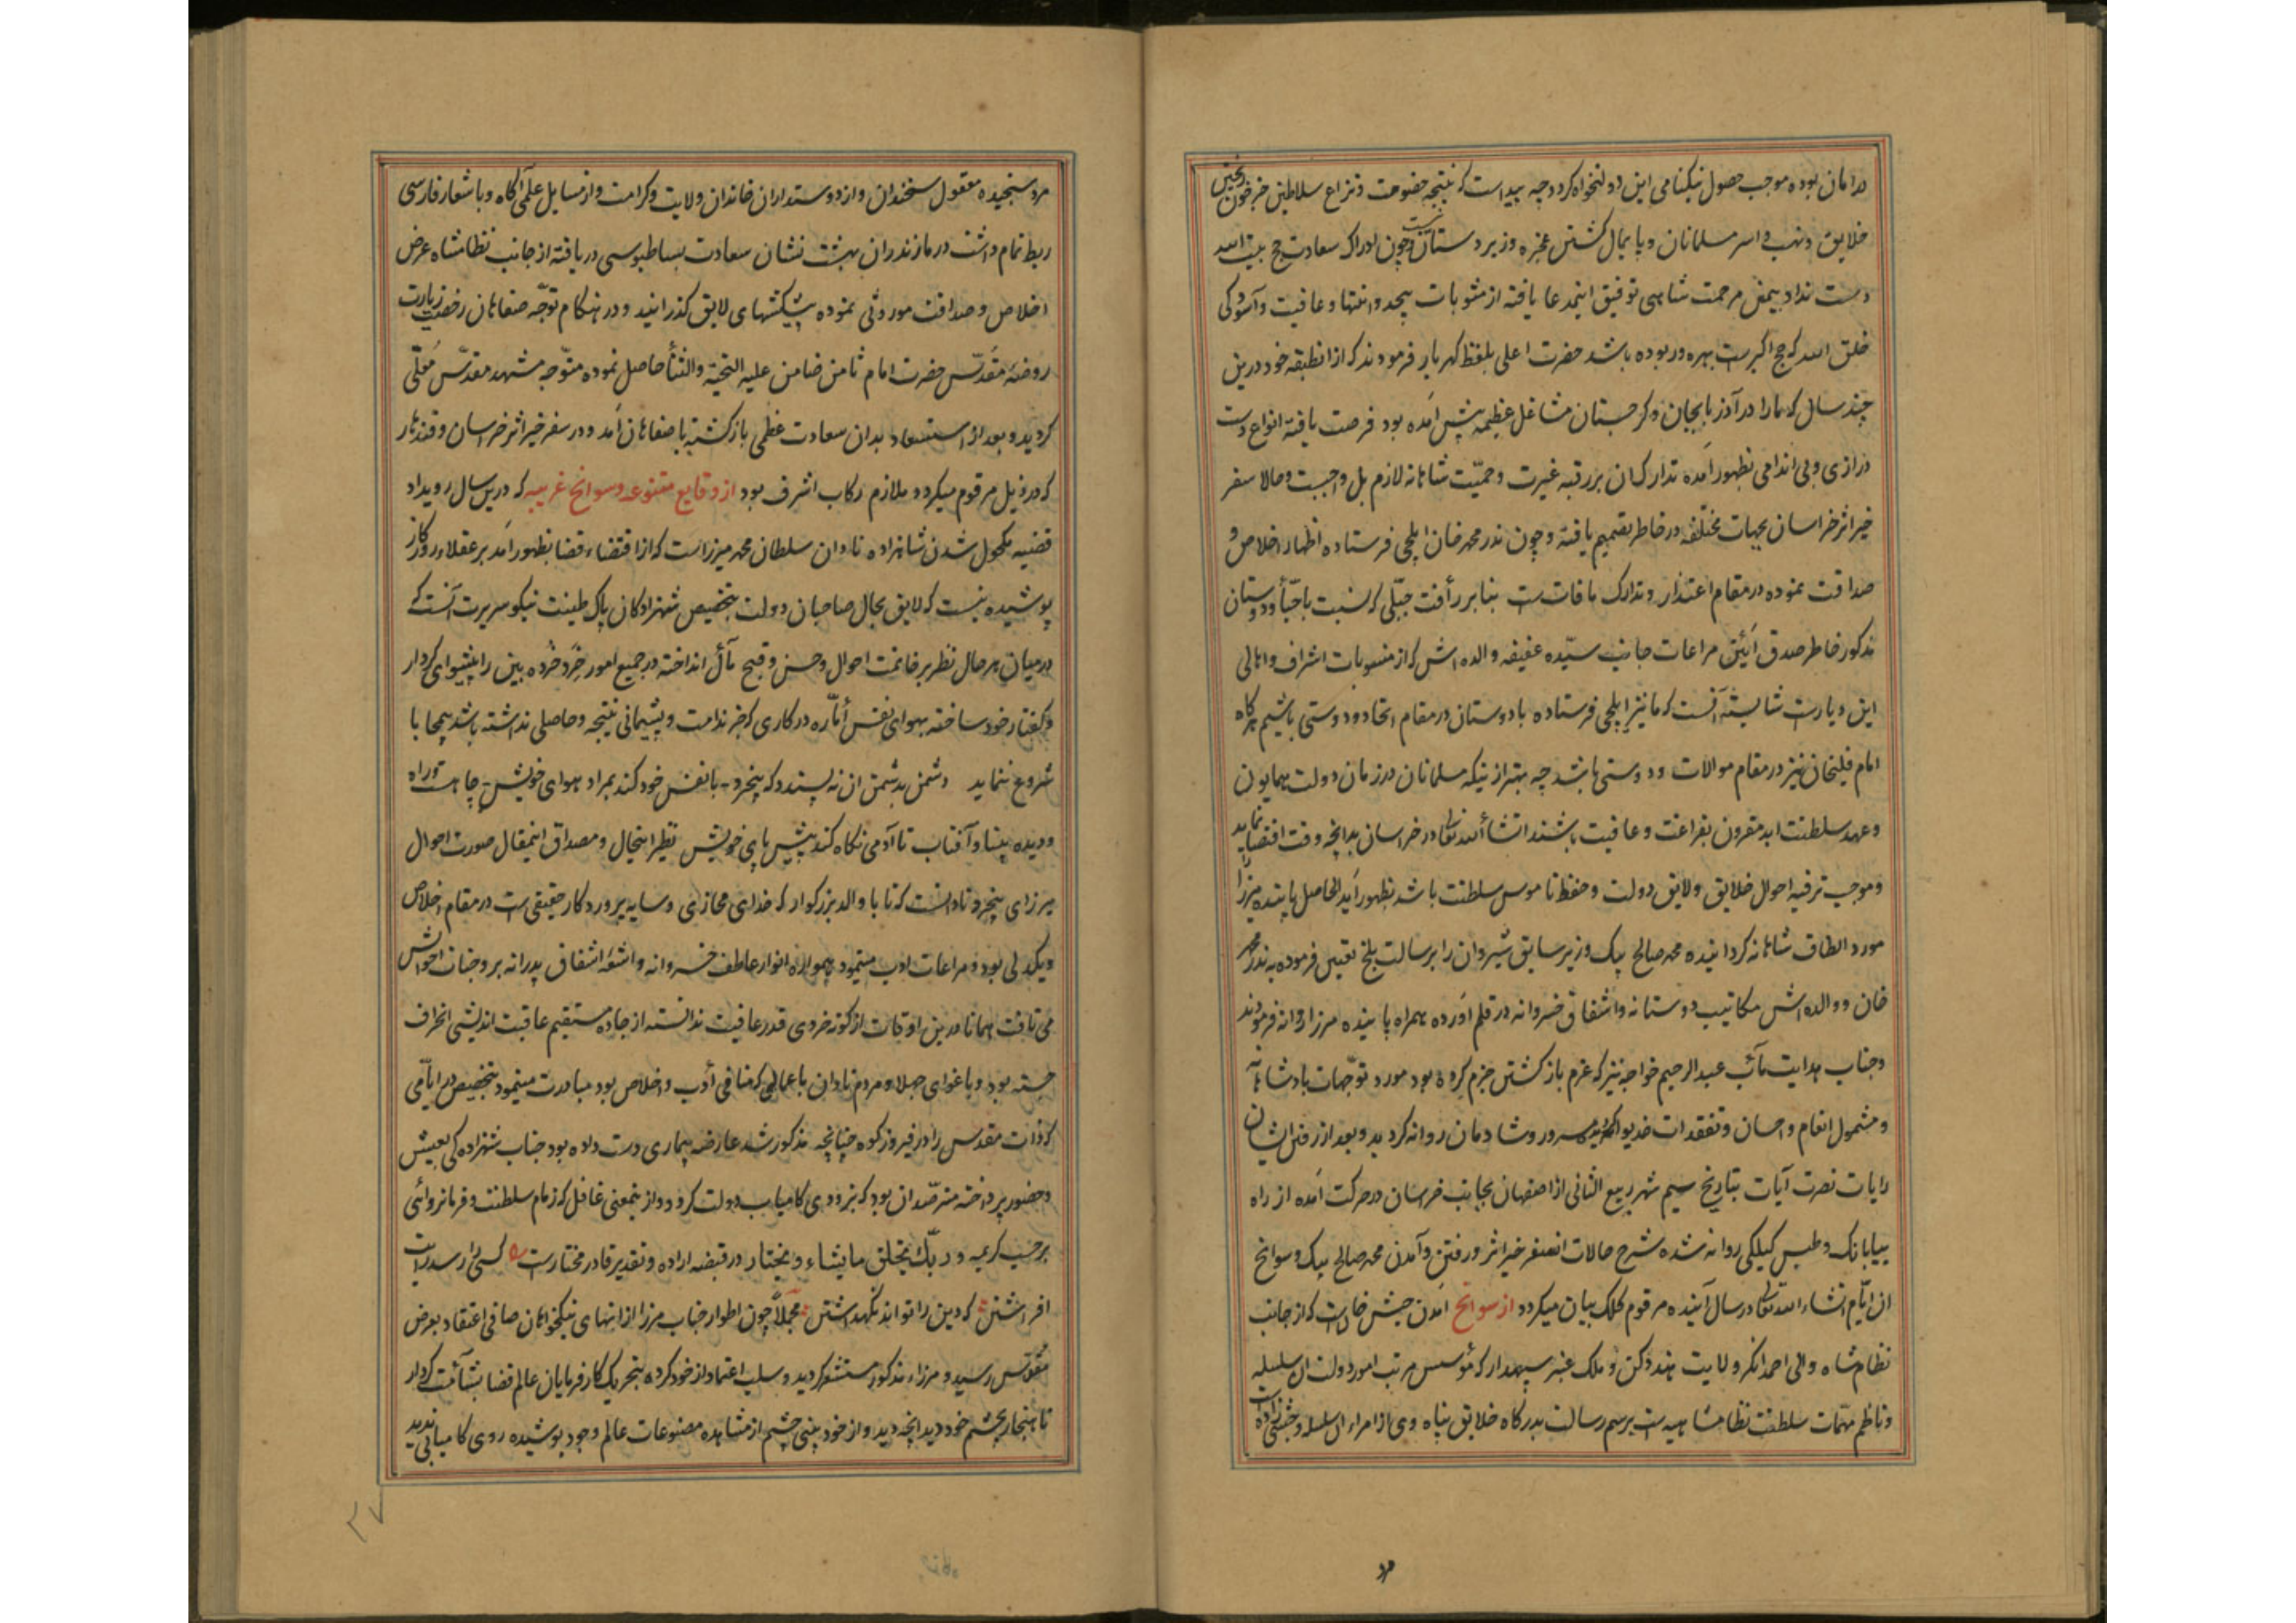 در امان بوده موجب حصول نیکنامی این دولتخواه گردد چه پیداست که نتیجه خصومت و نزاع سلاطین جز خون ریختن
خلایق و نهب و اسر مسلمانان و پایمال گشتن عجزه و زیردستان نیست و چون ادراک سعادت حج بیت الله
دست نداد بیمن مرحمت شاهی توفیق اینمدعا یافته از مثوبات بیحد و انتها و عافیت و آسودگی
خلق الله که حج اکبرست بهره ور بوده باشد حضرت اعلی بلفظ گهربار فرمودند که از انطبقه خود درین
چند سال که ما را در آذربایجان و گرجستان مشاغل عظیمه پیش آمده بود فرصت یافته انواع دست
درازی و بی اندامی بظهور آمده تدارک ان بر رقبه غیرت و حمیّت شاهانه لازم بل واجبست و حالا سفر
خیر اثر خراسان بجهات مختلفه در خاطر تصمیم یافته و چون ندر محمد خان ایلچی فرستاده اظهار اخلاص و
صداقت نموده در مقام اعتذار و تدارک مافاتست بنابر رأفت جبلّی که نسبت باحبّأ و دوستان
مذکور خاطر صدق آئین مراعات جانب سیّده عفیفه والده اش که از منسوبات اشراف و اهالی
این دیارست شایسته آنست که ما نیز ایلچی فرستاده با دوستان در مقام اتحاد و دوستی باشیم هرگاه
امام قلیخان نیز در مقام موالات و دوستی باشد چه بهتر از نیکه مسلمانان در زمان دولت همایون
و عهد سلطنت ابد مقرون بفراغت و عافیت باشند انشأ الله تعالی در خراسان بدانچه وقت اقتضا نماید
و موجب ترفیه احوال خلایق و لایق دولت و حفظ ناموس سلطنت باشد بظهور آید الحاصل پاینده میرزا را
مورد الطاف شاهانه گردانیده محمد صالح بیک وزیر سابق شیروان را برسالت بلخ تعیین فرموده به ندر محمد
خان و والده اش مکاتیب دوستانه و اشفاق خسروانه در قلم آورده همراه پاینده مرزا روانه فرمودند
و جناب هدایت مآب عبد الرحیم خواجه نیز که عزم بازگشتن جزم کرده بود مورد توجّهات بادشاهانه
و مشمول انعام و احسان و تفقدات خدیوانه گردیده مسرور و شادمان روانه گردید و بعد از رفتن ایشان
رایات نصرت آیات بتاریخ سیم شهر ربیع الثانی از اصفهان بجانب خراسان در حرکت آمده از راه
بیابانک و طبس گیلکی روانه شده شرح حالات انسفر خیر اثر و رفتن و آمدن محمد صالح بیک و سوانح
ان ایّام انشاء الله تعالی در سال آینده مرقوم کلک بیان میگردد از سوانح آمدن حبش خانست که از جانب
نظام شاه والی احمد نگر ولایت هند دکن و ملک عنبر سپهدار که مؤسس مرتب امور دولت ان سلسله
و ناظم مهّمات سلطنت نظامشاهیه است برسم رسالت بدرگاه خلایق پناه وی از امراء ان سلسله و حبشی زاده است
مرد
مرد سنجیده معقول سخندان و از دوستداران خاندان ولایت و کرامت و از مسایل علمی آگاه و با شعار فارسی
ربط تمام داشت در مازندران بهشت نشان سعادت بساطبوسی دریافته از جانب نظامشاه عرض
اخلاص و صداقت موروثی نموده پیشکشهای لایق گذرانید و در هنگام توجّه صفاهان رخصت زیارت
روضه مقدّس حضرت امام ثامن ضامن علیه التحیة والثنأ حاصل نموده متوّجه مشهد مقدّس مُعَلّی
گردید و بعد از استسعاد بدان سعادت عظمی بازگشته باصفاهان آمد و در سفر خیر اثر خراسان و قندهار
که در ذیل مرقوم میگردد ملازم رکاب اشرف بود از وقایع متنوعه و سوانح غریبه که درین سال رویداد
قضیه مکحول شدن شاهزاده نادان سلطان محمد میرزاست که از اقتضاء قضا بظهور آمد بر عقلاء روزگار
پوشیده نیست که لایق بحال صاحبان دولت بتخصیص شهزادگان پاک طینت نیکو سریرت آنست که
در میان هر حال نظر بر خاتمت احوال و حسن و قبح مآل انداخته در جمیع امور خِرَد خُرده بین را پیشوای کردار
و گفتار خود ساخته بهوای نفس أمّاره در کاری که جز ندامت و پشیمانی نتیجه و حاصلی نداشته باشد بیمحابا
شروع ننماید دشمن بدشمن ان نه پسندد که بیخرد با نفس خود کند بمراد هوای خویش چاهست و راه
و دیده بینا و آفتاب تا آدمی نگاه کند پیش پای خویش نظیر اینحال و مصداق اینمقال صورت احوال
میرزای بیخرد نادانست که تا با والد بزرگوار که خدای مجازی و سایه پروردگار حقیقی است در مقام اخلاص
و یکدلی بود و مراعات ادب مینمود همواره انوار عاطفت خسروانه و اشعّه اشفاق پدرانه بر وجنات احوالش
می تافت همانا درین اوقات از کوته خردی قدر عافیت ندانسته از جاده مستقیم عاقبت اندیشی انحراف
جسته بود و باغوای جهلا و مردم نادان باعمالی که منافی أدب و اخلاص بود مبادرت مینمود بتخصیص در ایّامی
که ذات مقدس را در فیروزکوه چنانچه مذکور شد عارضه بیماری دست داده بود جناب شهزاده کی بعیش
و حضور پرداخته مترصّد ان بود که بزودی کامیاب دولت گردد و از ینمعنی غافل که زمام سلطنت و فرمانروائی
برحسب کریمه و ربّک یخلق ما یشاء و یختار در قبضه اراده و تقدیر قادر مختارست کسی را رسد رایت
افراشتن که دین را تواند نگهداشتن مُجملاً چون اطوار جناب مرزا از انهای نیکخواهان صافی اعتقاد بعرض
مقدّس رسید و مرزاء مذکور مستشعر گردید و سلب اعتماد از خود کرده بتحریک کارفرمایان عالم قضا بشأمت کردار
ناهنجار بچشم خود دید انچه دید و از خود بینی چشم از مشاهده مصنوعات عالم وجود پوشیده روی کامیابی ندید
۲۷